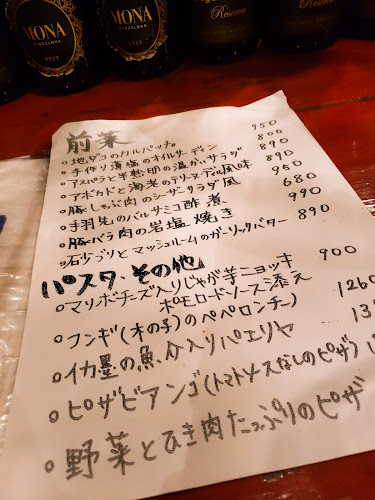 MONA
BARCELONA
BRUT
MONA
BARCELONA
BRUT
Reserva
Reserva
前菜
○地ダコのカルパッチョ 950
○手作り薄塩のオイルサーディン 800
○アスパラと半熟卵の温かいサラダ 890
○アボカドと海老のテリーヌディル風味 890
○豚しゃぶ肉のシーザーサラダ風 950
○手羽先のバルサミコ酢煮 680
○豚バラ肉の岩塩焼き 990
○石づりとマッシュルームのガーリックバター 890
パスタ・その他
○マリボーチーズ入りじゃが芋ニョッキ 900
ポモロードソース添え
○フンギ(木の子)のペペロンチーノ 1260
○イカ墨の魚介入りパエリヤ
○ピザビアンゴ(トマトソースなしのピザ)
○野菜とひき肉たっぷりのピザ